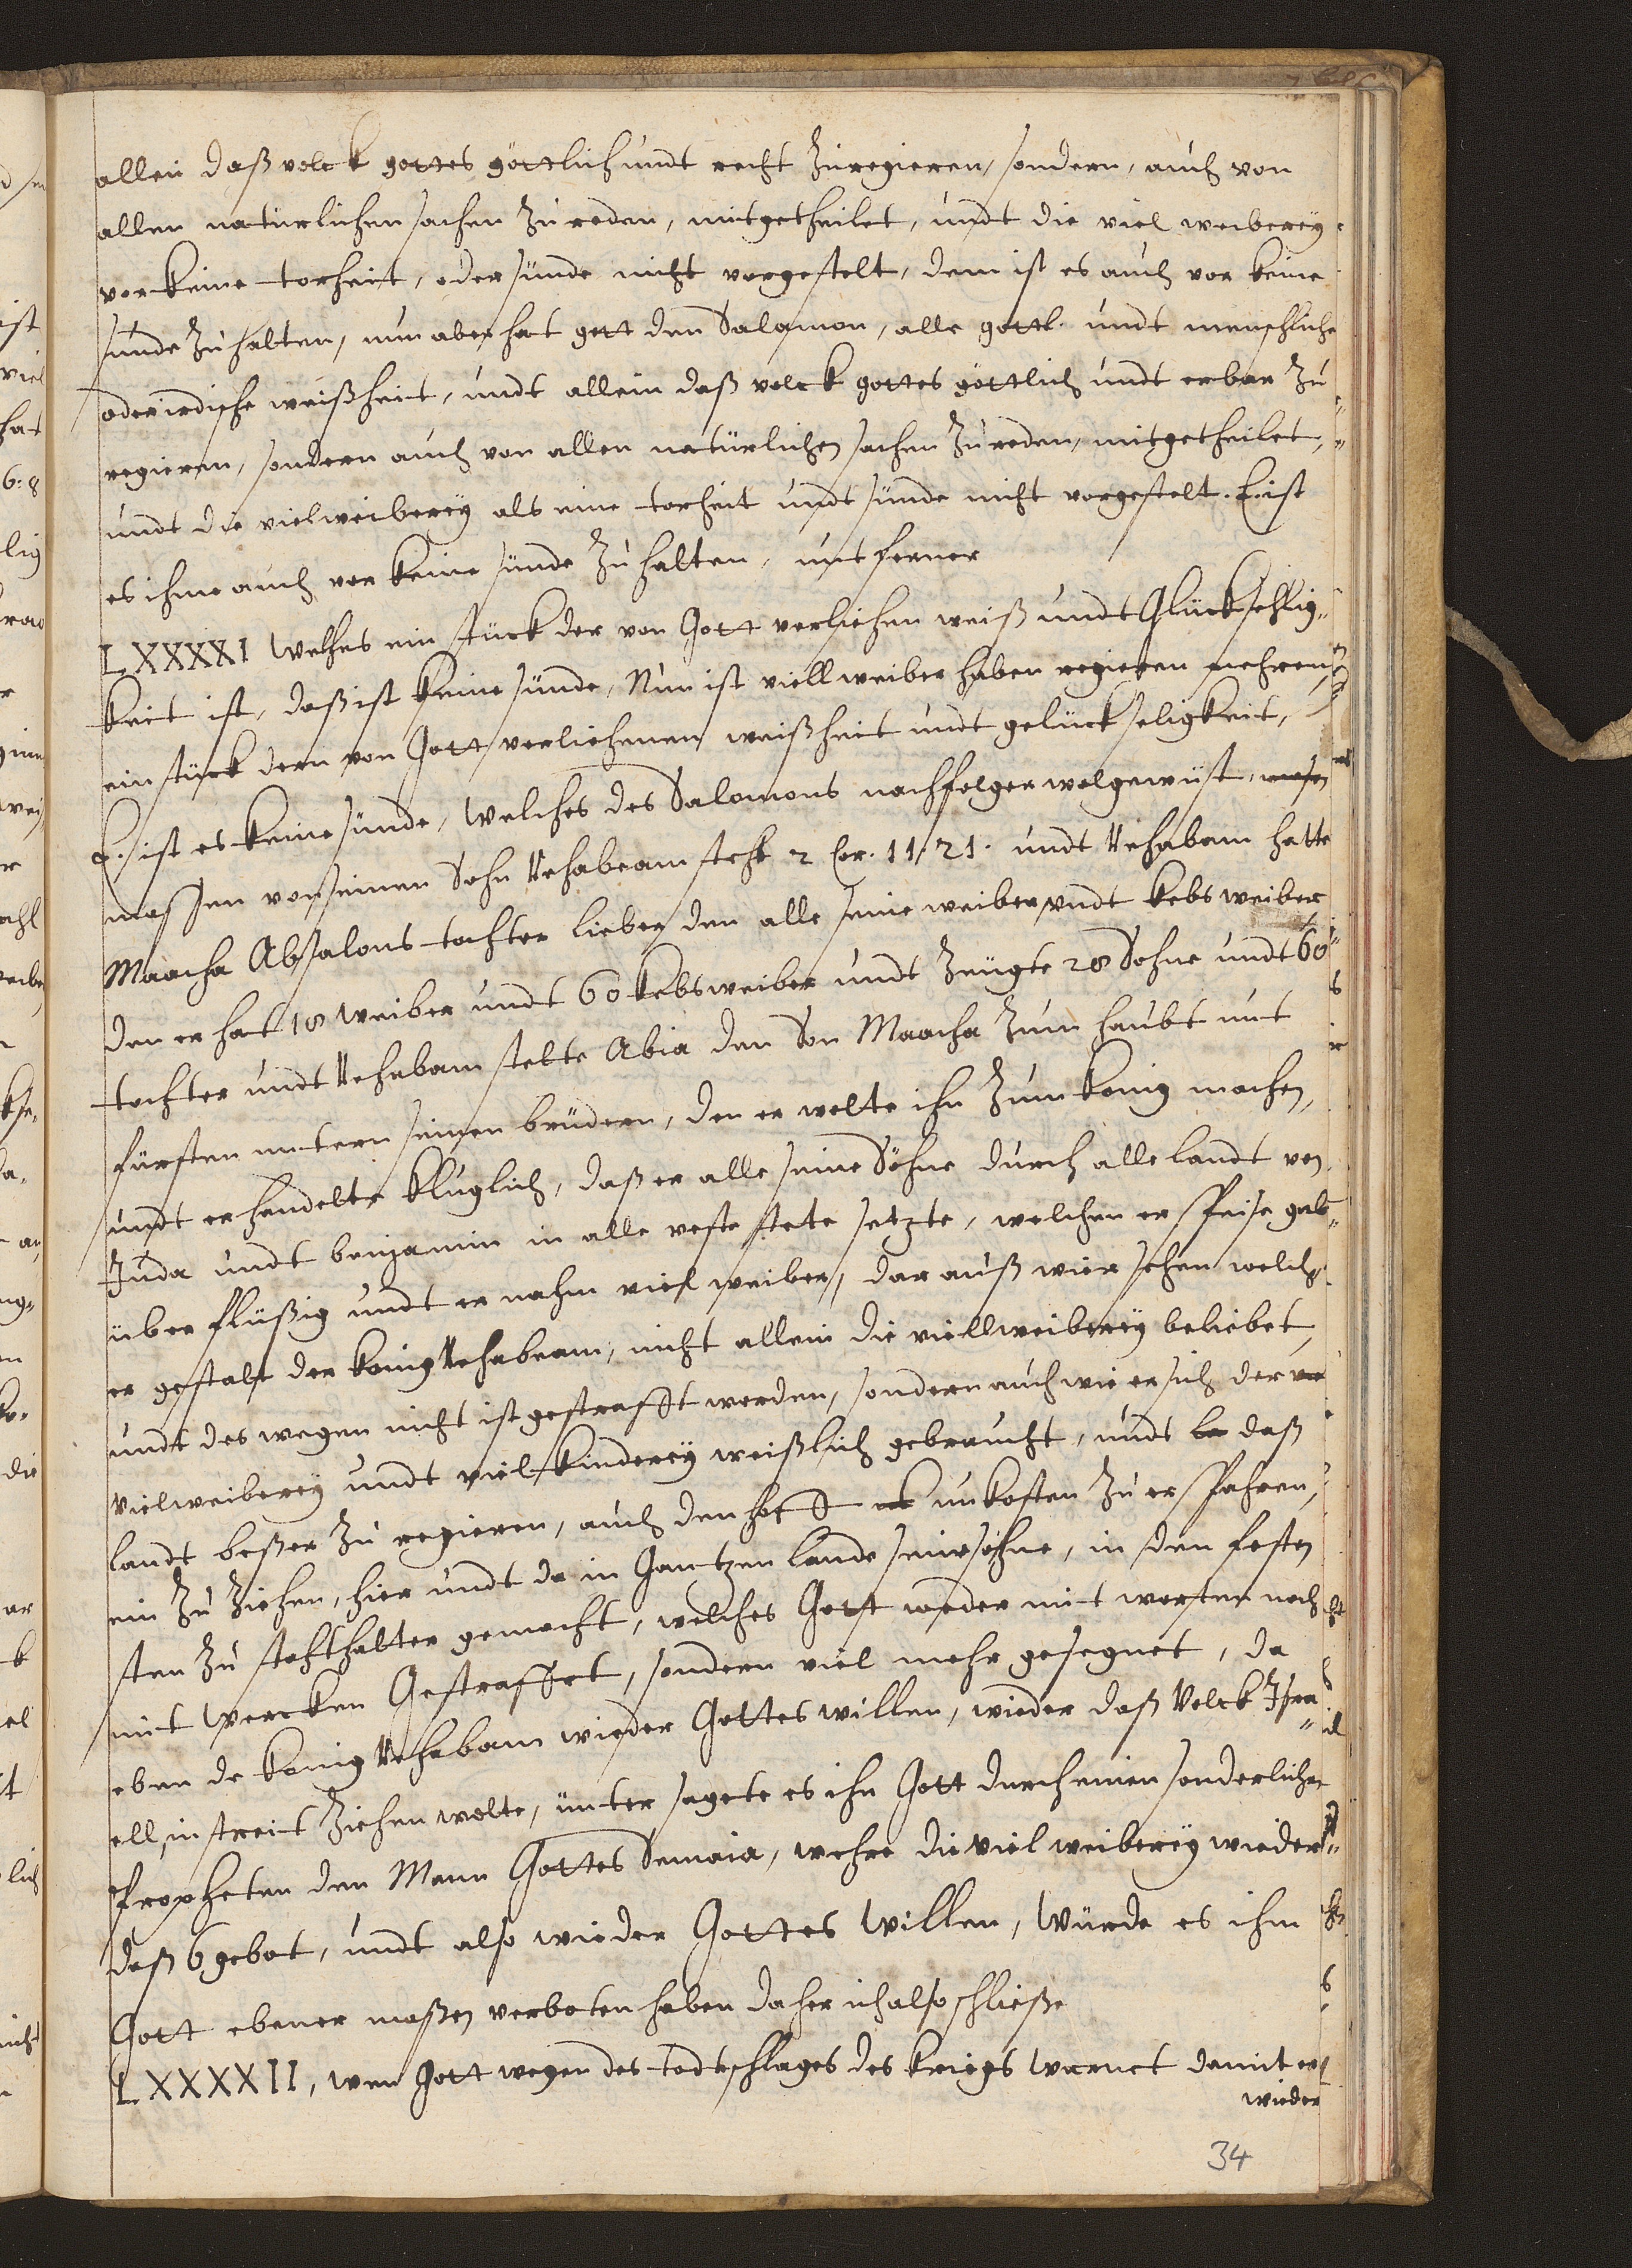 allein daß volck gottes göttlich undt recht zu regieren, sondern, auch von
allen natürlichen sachen zu reden, mitgetheilet, undt die viel weiberey
vor keine torheit, oder sünde nicht vorgestelt, dem ist es auch vor keine
sünde zu halten, nun aber hat gott den Salamon, alle göttl. undt menschliche
oder irdische weißheit, undt allein daß volck gottes göttlich undt erbar zu
regieren, sondern auch von allen natürlichen sachen zu reden, mitgetheilet,
undt die vielweiberey als eine torheit undt sünde nicht vorgestelt. E. ist
es ihme auch vor keine sünde zu halten, unt ferner
LXXXXI Welches ein stück der von Gott verliehen weiß undt Glückseelig-
keit ist, daß ist keine sünde, Nun ist viell weiber haben regieren mehren
ein stück dern von Gott verliehenen weißheit undt gelückseligkeit,
E. ist es keine sünde, Welches des Salomons nachfolger wol gewust,
massen von seinen Sohn Rehabeam steht 2 Cor. 11/21. undt Rehabam hatte
Maacha Absalons tochter lieber den alle seine weiber undt kebs weiber
den er hat 18 weiber undt 60 kebsweiber undt zeugte 28 Sohne undt 60
tochter undt Rehabam stelte Abia den Son Maacha zum haubt unt
fürsten untern seinen brüdern, den er wolte ihn zum konig machen,
undt er handelte kluglich, daß er alle seine Söhne durch alle landt von
Juda undt benjamin in alle veste stete setzte, welchen er speise gab
über flüßig undt er nahm viel weiber, dar auß wier sehen welch
er gestalt der konig Rehabeam, nicht allein die viellweiberey beliebet,
undt des wegen nicht ist gestrafft worden, sondern auch wie er sich der
vielweiberey undt viel kinderey weißlich gebraucht, undt daß
landt beßer zu regieren, auch den hoff unkosten zu erspahren,
ein zu ziehen, hier undt da in Gantzen lande seine söhne, in den festen
sten zu stathalter gemacht, welches Gott weder mit worten noch
mit wercken Gestraffet, sondern viel mehr gesegnet, da
eben de konig Rehabam wieder Gottes willen, wieder daß Volck Isra-
ell, in streit ziehen wolte, unter sagete es ihn Gott durch einen sonderlichen
Propheten den Mann Gottes Semaia, wehre die viel weiberey wieder
daß 6 gebot, undt also wieder Gottes Willen, würde es ihm
Gott ebener maßen verboten haben daher ich also schließe
LXXXXII, wen Gott wegen des todtschlages des kriegs warnet damit er
wieder
34